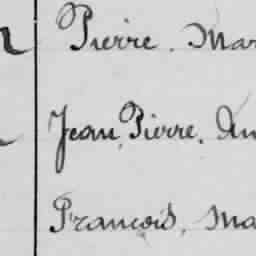 Pierre. Mar
Jean, Pierre, An
François, Ma